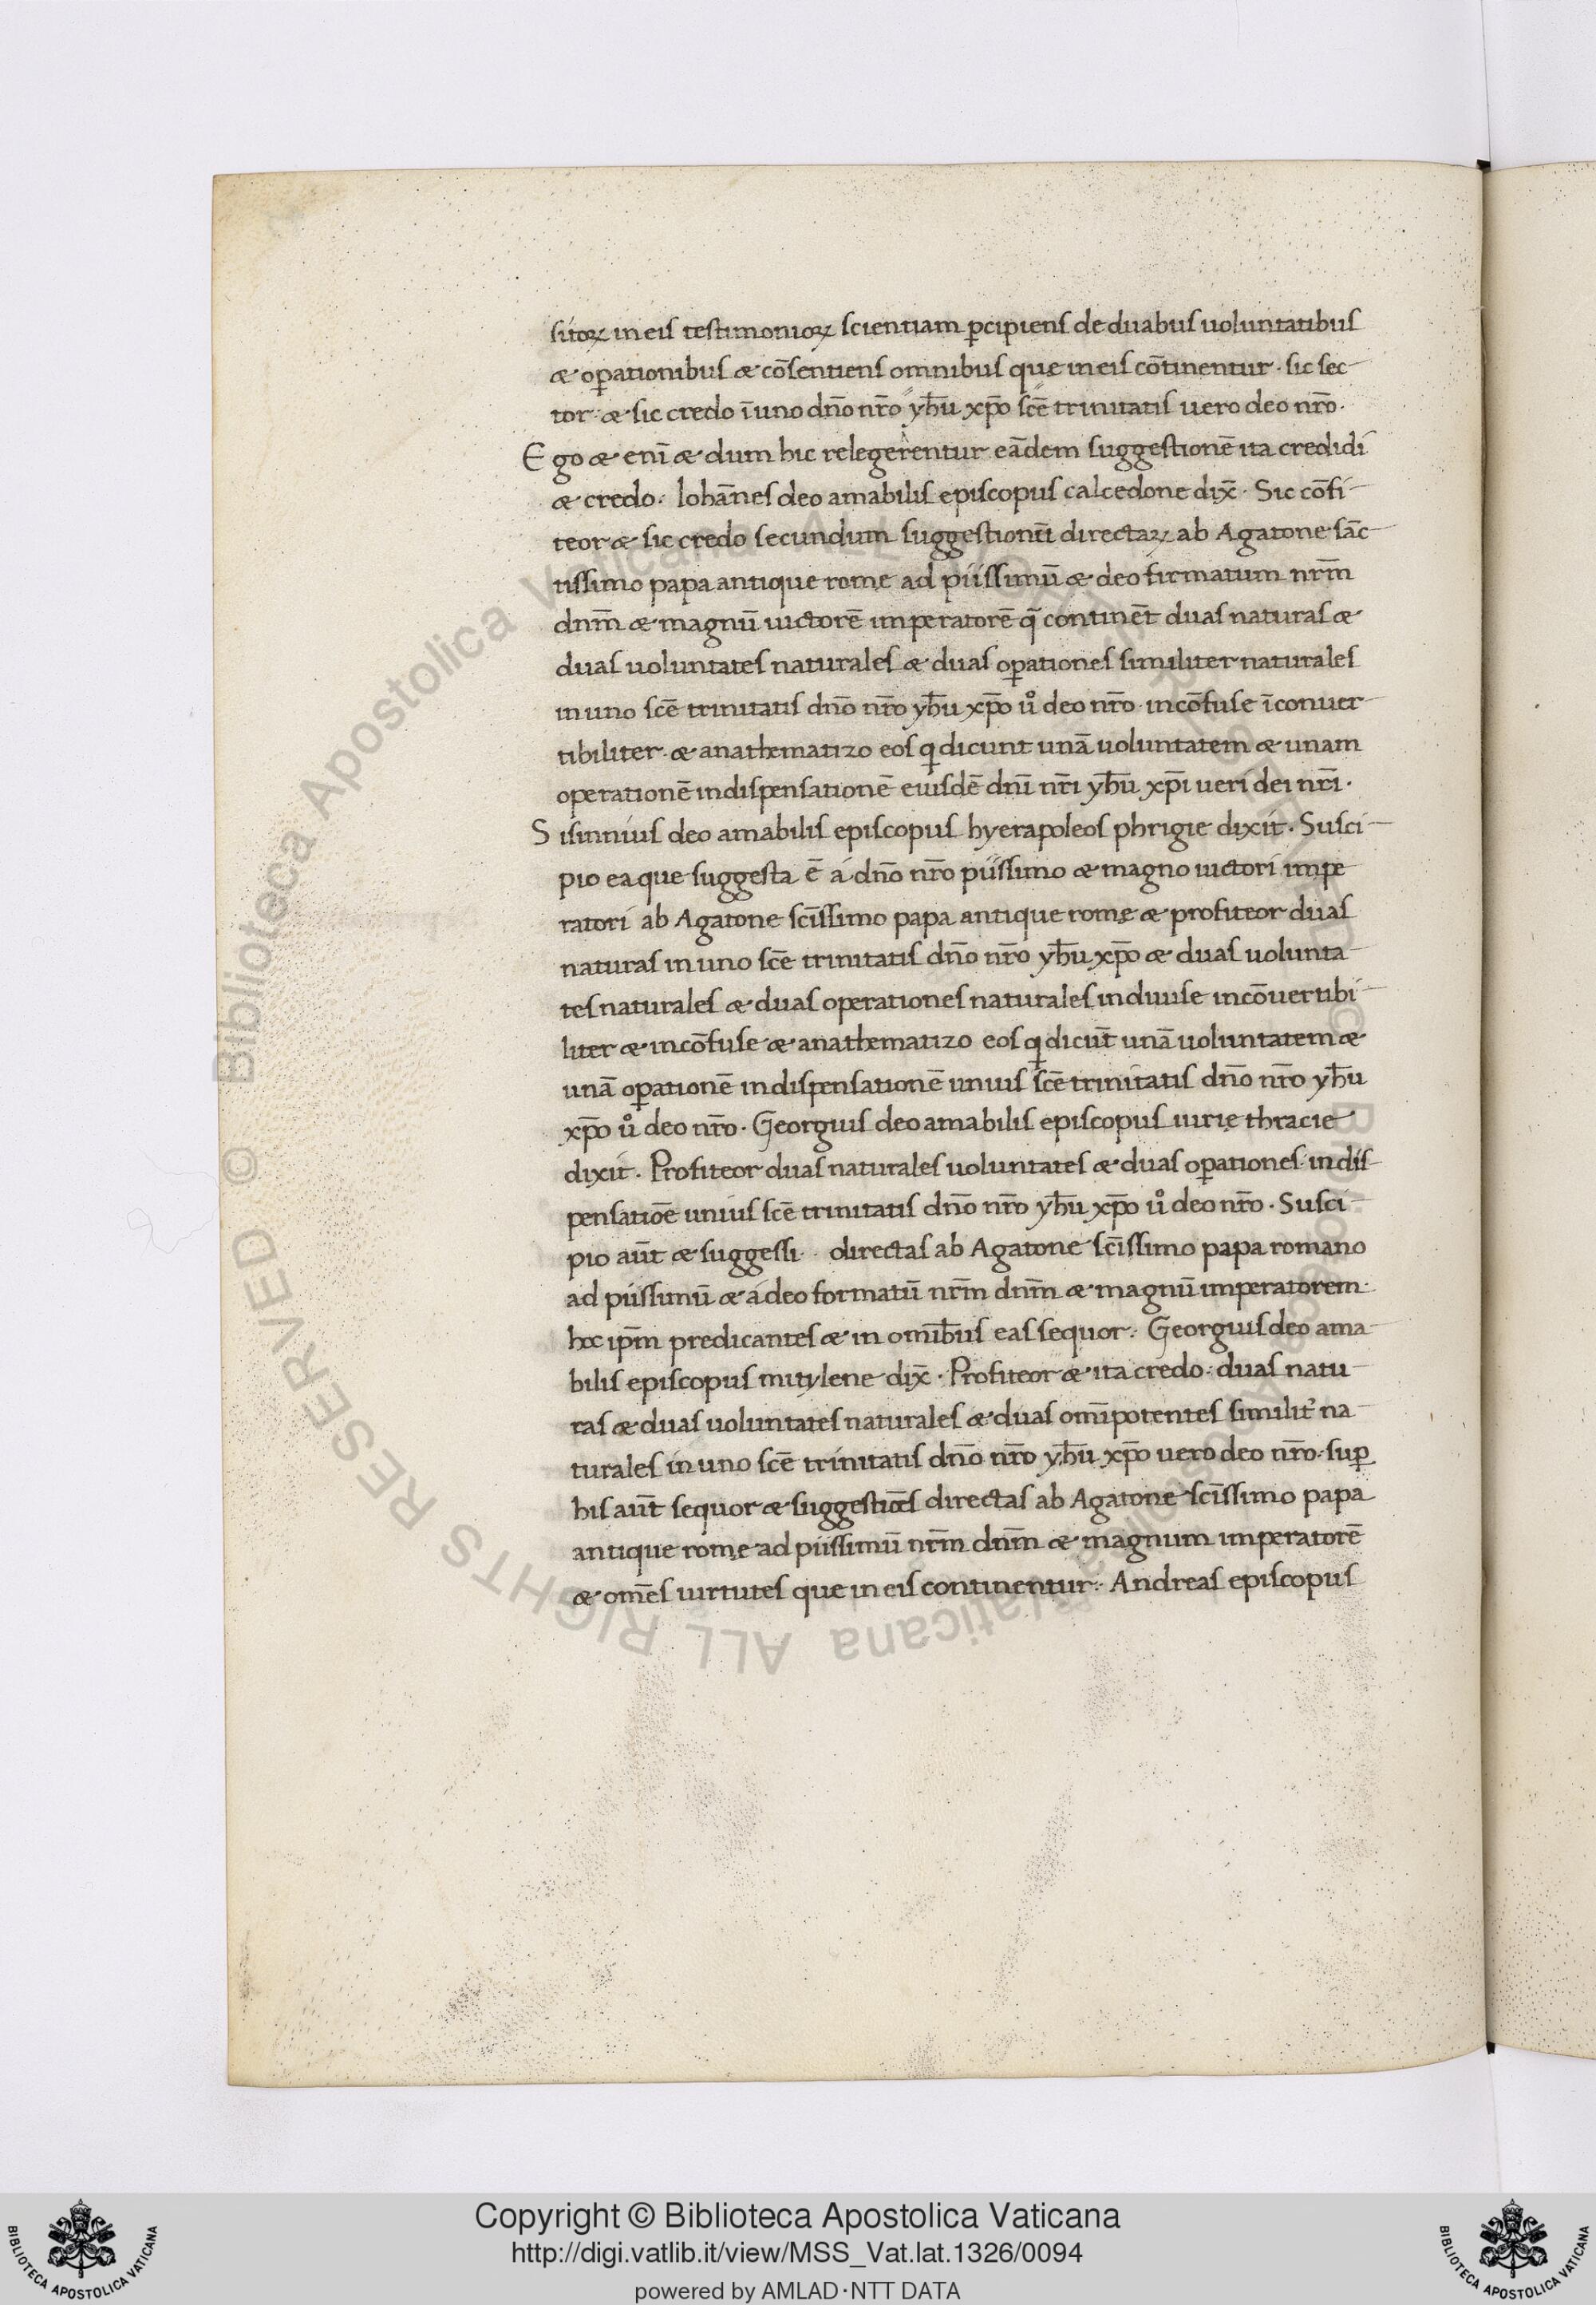 sitoꝝ in eis testimonioꝝ scientiam ꝑcipiens de duabus uoluntatibus
æ oꝑationibus æ cōsentiens omnibus quę in eis cōtinentur · sic sec-
tor · æ sic credo ī uno dn̄o nr̄o yh̄u xp̄o sc̄e trinitatis uero deo nr̄o ·
Ego æ eni̅ æ dum hic relegerentur eādem suggestionē ita credidi
æ credo · Iohānes deo amabilis episcopus calcedone dix̄ · Sic cōfi-
teor æ sic credo secundum suggestionū directaꝝ ab Agatone sāc-
tissimo papa antique romę ad piissimū æ deo firmatum nr̄m
dnm̄ æ magnū uictorē imperatorē q̄ continēt duas naturas æ
duas uoluntates naturales æ duas oꝑationes similiter naturales
in uno sc̄e trinitatis dn̄o nr̄o yh̄u xp̄o uͦ deo nr̄o · incōfuse īconuer-
tibiliter · æ anathematizo eos qi dicunt unā uoluntatem æ unam
operationē in dispensationē eiusdē dnī nr̄i yh̄u xp̄i ueri dei nr̄i ·
Sisinnius deo amabilis episcopus hyerapoleos phrigie dixit · Susci-
pio ea que suggesta ē á dn̄o nr̄o piissimo æ magno uictori impe
ratori ab Agatone sc̄issimo papa antique romę æ profiteor duas
naturas in uno sc̄e trinitatis dn̄o nr̄o yh̄u xp̄o æ duas uolunta-
tes naturales æ duas operationes naturales indiuise incōuertibi-
liter æ incōfuse æ anathematizo eos qi dicūt unā uoluntatem æ
unā oꝑationē in dispensationē unius sc̄e trinitatis dn̄o nr̄o yh̄u
xp̄o uͦ deo nr̄o · Georgius deo amabilis episcopus uirię thracie
dixit · Profiteor duas naturales uoluntates æ duas oꝑationes in dis-
pensatiōe unius sc̄e trinitatis dn̄o nr̄o yh̄u xp̄o uͦ deo nr̄o · Susci-
pio aūt æ suggessi · directas ab Agatone sc̄issimo papa romano
ad piissimū æ á deo formatū nr̄m dnm̄ æ magnū imperatorem
hoc ip̄m predicantes æ in omīb̄us eas sequor · Georgius deo ama-
bilis episcopus mitylene dix̄ · Profiteor æ ita credo · duas natu-
ras æ duas uoluntates naturales æ duas omīpotentes similit᷑ na-
turales in uno sc̄e trinitatis dn̄o nr̄o yh̄u xp̄o uero deo nr̄o · suꝑ
his aūt sequor æ suggestiōes directas ab Agatone sc̄issimo papa
antique romę ad piissimū nr̄m dnm̄ æ magnum imperatorē
æ om̄es uirtutes que in eis continentur · Andreas episcopus
© Biblioteca Apostolica Vaticana ALL RIGHTS RESERVED
© Biblioteca Apostolica Vaticana ALL RIGHTS RESERVED
Copyright © Biblioteca Apostolica Vaticana
http://digi.vatlib.it/view/MSS_Vat.lat.1326/0094
powered by AMLAD·NTT DATA
BIBLIOTECA APOSTOLICA VATICANA
BIBLIOTECA APOSTOLICA VATICANA